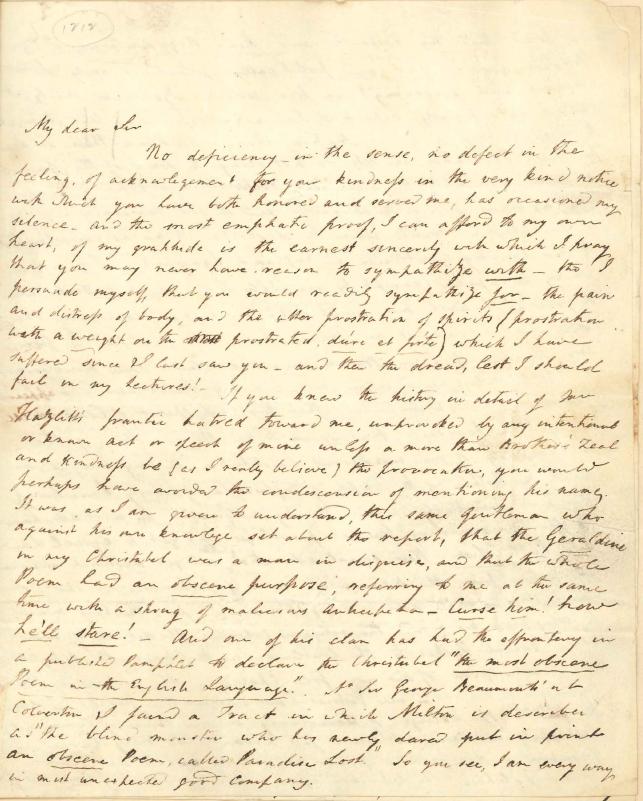 1818
My dear Sir
No deficiency in the sense, no defect in the
feeling, of acknowlegement for your kindness in the very kind notice
with which you have both honored and served me, has occasioned my
silence – and the most emphatic proof, I can afford to my own
heart, of my gratitude is the earnest sincerity with which I pray
that you may never have reason to sympathize with – tho' I
persuade myself, that you would readily sympathize for – the pain
and distress of body, and the utter prostration of spirits (prostration
with a weight on the prostrated, dure et forte) which I have
suffered since I last saw you – and then the dread, lest I should
fail in my Lectures! – If you knew the history in detail of Mr
Hazlitt's frantic hatred toward me, unprovoked by any intentional
or known act or speech of mine unless a more than Brother's Zeal
and Kindness be (as I really believe) the provocation, you would
perhaps have avoided the condescension of mentioning his name.
It was, as I am given to understand, this same Gentleman who
against his own knowlege set about the report, that the Geraldine
in my Christabel was a man in disguise, and that the whole
Poem had an obscene purpose, referring to me at the same
time with a shrug of malicious anticipation – Curse him! how
he'll stare! – And one of his clan has had the effrontery in
a published Pamphlet to declare the Christabel "the most obscene
Poem in the English Language". At Sir George Beaumont's at
Coleorton I found a Tract in which Milton is described
as "the blind monster who has newly dared put in print
an obscene Poem, called Paradise Lost." So you see, I am every way
in most unexpected good company.